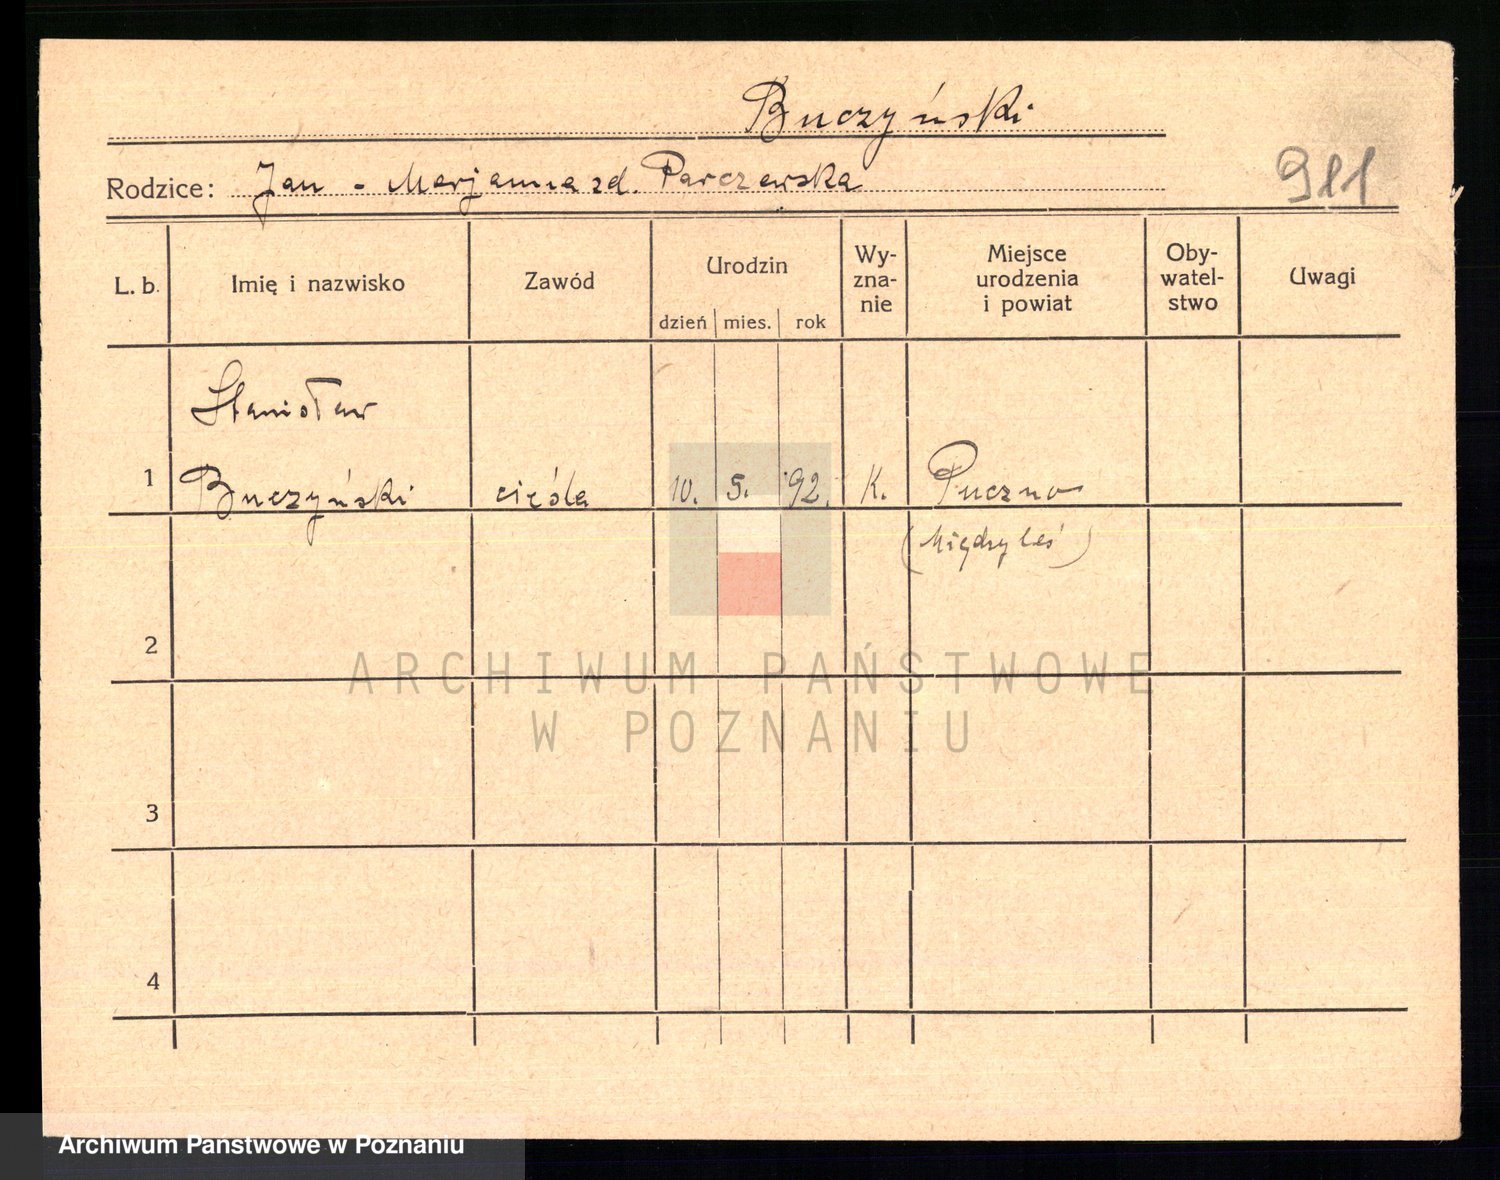 Buczyński
Rodzice: Jan - Marjanna zd. Parczewska
911
L. b. Imię i nazwisko Zawód Urodzin dzień mies. rok Wy-zna-nie Miejsce urodzenia i powiat Oby-watel-stwo Uwagi
Stanisław
1 Buczyński cieśla 10. 5. 92. K. Puczno
(Międzyleś)
2
ARCHIWUM PAŃSTWOWE
W POZNANIU
3
4
Archiwum Państwowe w Poznaniu